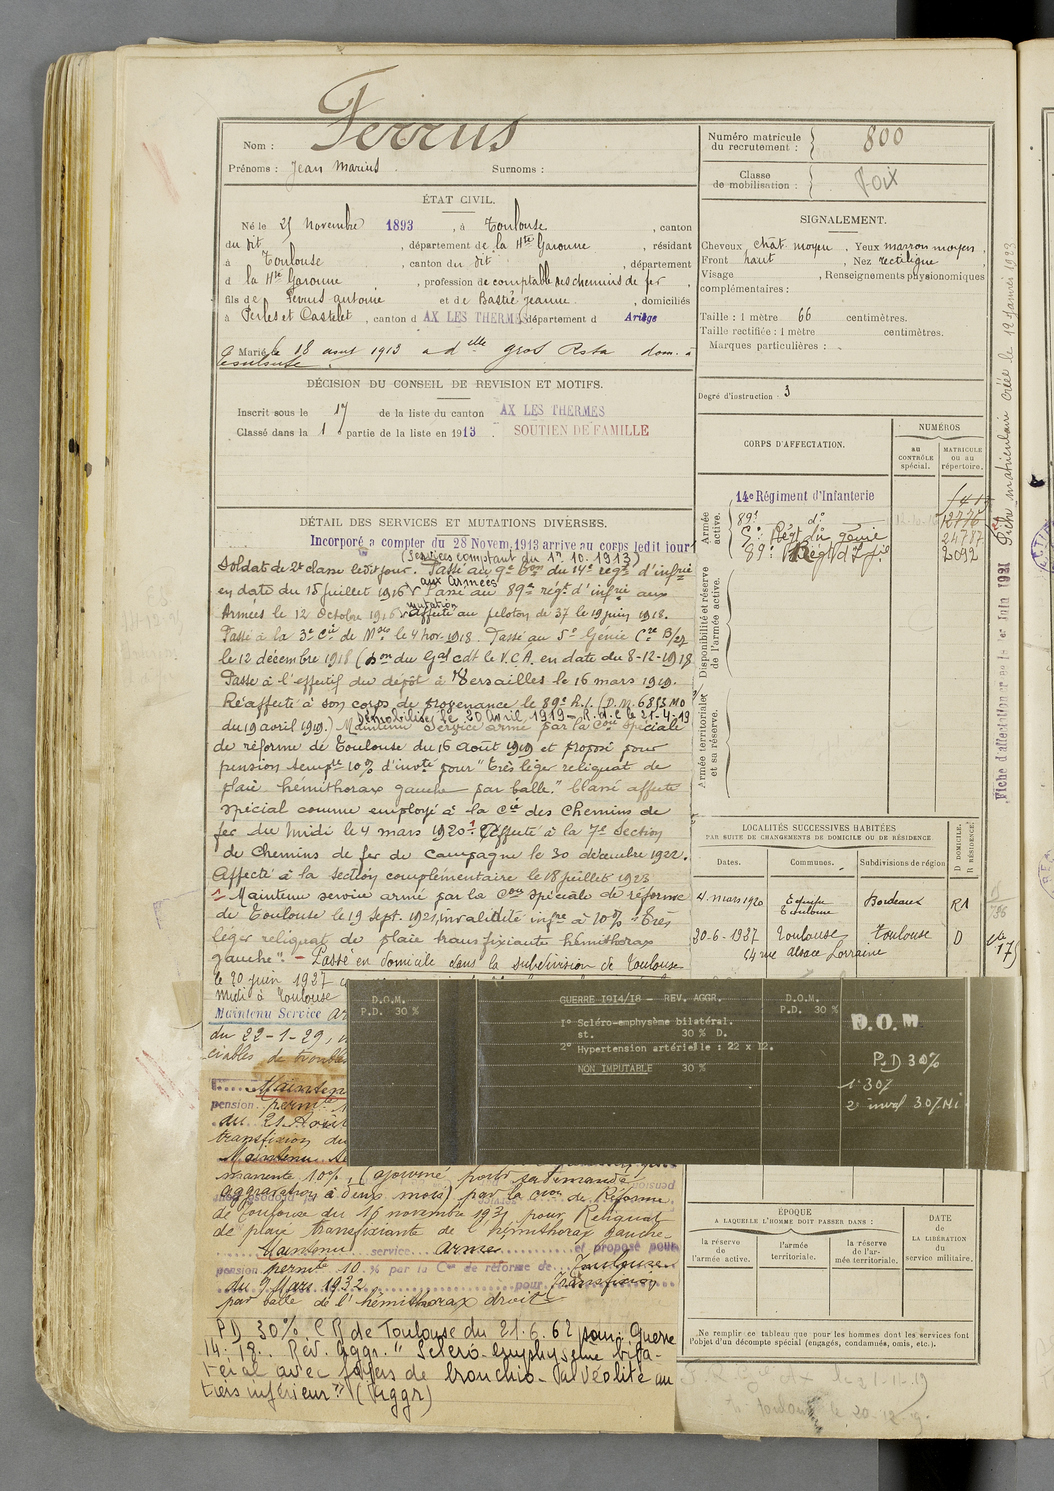 Ferrus
Nom :
Prénoms : Jean Marius Surnoms :
Numéro matricule
du recrutement : 800
Classe
de mobilisation : Foix
ÉTAT CIVIL.
Né le 25 Novembre 1893, à Toulouse, canton
du dit, département de la Hte Garonne, résidant
à Toulouse, canton du dit, département
d la Hte Garonne, profession de comptable des chemins de fer,
fils de Ferrus Antoine et de Bastié Jeanne, domiciliés
à Perles et Castelet, canton d AX LES THERMES, département d Ariège
Marié le 18 aout 1913 à dlle Gros Rosa dom. à
Toulouse.
SIGNALEMENT.
Cheveux chât. moyen, Yeux marron moyen,
Front haut, Nez rectiligne,
Visage , Renseignements physionomiques
complémentaires :
Taille : 1 mètre 66 centimètres.
Taille rectifiée : 1 mètre centimètres.
Marques particulières :
Degré d'instruction : 3
DÉCISION DU CONSEIL DE REVISION ET MOTIFS.
Inscrit sous le 17 de la liste du canton AX LES THERMES
Classé dans la 1 partie de la liste en 1913. SOUTIEN DE FAMILLE
CORPS D'AFFECTATION.
NUMÉROS
au
CONTRÔLE
spécial.
MATRICULE
ou au
répertoire.
Armée
active.
14e Régiment d'Infanterie
89e do 12776
5e Régt du génie 24787
89e Régt d'Ife 2092
Disponibilité et réserve
de l'armée active.
Armée territoriale
et sa réserve.
Fiche matriculaire créée le 12 Janvier 1923
Fiche d'affectation créée le 1er Juin 1921
DÉTAIL DES SERVICES ET MUTATIONS DIVERSES.
Incorporé a compter du 28 Novem. 1913 arrive au corps ledit jour
(Services comptant du 1er. 10. 1913)
Soldat de 2e classe ledit jour. Passé au 9e Bon du 14e régt d'infrie
aux Armées
en date du 15 juillet 1916 Passé au 89e régt d'infrie aux
mutation
Armées le 12 Octobre 1916 Affecté au peloton de 37 le 19 juin 1918.
Passé à la 3e Cie de Mses le 4 nov. 1918. Passé au 5e Génie Cie B/27
le 12 décembre 1918 (Don du Gal cdt le V.C.A. en date du 8-12-1918
Passé à l'effectif du dépôt à Versailles le 16 mars 1919.
Réaffecté à son corps de provenance le 89e R.I. (D.M. 6853 MO
Démobilisé le 20 Avril 1919 - R.d.C le 21-4-19
du 19 avril 1919.) Maintenu Service armé par la Con spéciale
de réforme de Toulouse du 16 Août 1919 et proposé pour
pension tempre 10% d'invté pour "très léger reliquat de
plaie hémithorax gauche par balle." Classé affecté
spécial comme employé à la Cie des Chemins de
fer du Midi le 4 mars 1920. Affecté à la 7e Section
de Chemins de fer de Campagne le 30 décembre 1922.
Affecté à la section complémentaire le 18 juillet 1923
Maintenu service armé par la Con spéciale de réforme
de Toulouse le 19 Sept. 1921, invalidité infre à 10% "Très
léger reliquat de plaie transfixiante hémithorax
gauche". - Passé en domicile dans la subdivision de Toulouse
le 20 juin 1937
Midi à Toulouse
Maintenu Service
du 22-1-29,
ciables de troubles
Maintenu
pension permte
du 21 Août
transfixion du
Maintenu
manente 10%, (ajourné pour sa demande
aggravation à deux mois) par la Con de Réforme
de Toulouse du 16 novembre 1931 pour Reliquat
de plaie transfixiante de l'hémithorax gauche.
Maintenu service armée et proposé pour
pension permte 10 % par la Con de réforme de Toulouse
du 9 Mars 1932 pour Transfixion
par balle de l'hémithorax droit
PD 30% C R de Toulouse du 21.6.62 pour Guerre
14-18. Rev. Aggr. "Scléro-emphysème bila-
téral avec foyers de broncho-alvéolite au
tiers inférieur" (Aggr)
LOCALITÉS SUCCESSIVES HABITÉES
PAR SUITE DE CHANGEMENTS DE DOMICILE OU DE RÉSIDENCE.
Dates. Communes. Subdivisions de région D DOMICILE. R RÉSIDENCE.
4 mars 1920 Toulouse Bordeaux
20-6-1937 Toulouse Toulouse D
64 rue Alsace Lorraine
D.O.M.
P.D. 30 %
GUERRE 1914/18 - REV. AGGR.
1° Scléro-emphysème bilatéral.
st. 30 % D.
2° Hypertension artérielle : 22 x 12.
NON IMPUTABLE 30 %
D.O.M.
P.D. 30 %
D.O.M
P.D 30%
1° 30%
2° inval 30% NI
ÉPOQUE
A LAQUELLE L'HOMME DOIT PASSER DANS :
la réserve
de
l'armée active.
l'armée
territoriale.
la réserve
de l'ar-
mée territoriale.
DATE
de
LA LIBÉRATION
du
service militaire.
Ne remplir ce tableau que pour les hommes dont les services font
l'objet d'un décompte spécial (engagés, condamnés, omis, etc.).